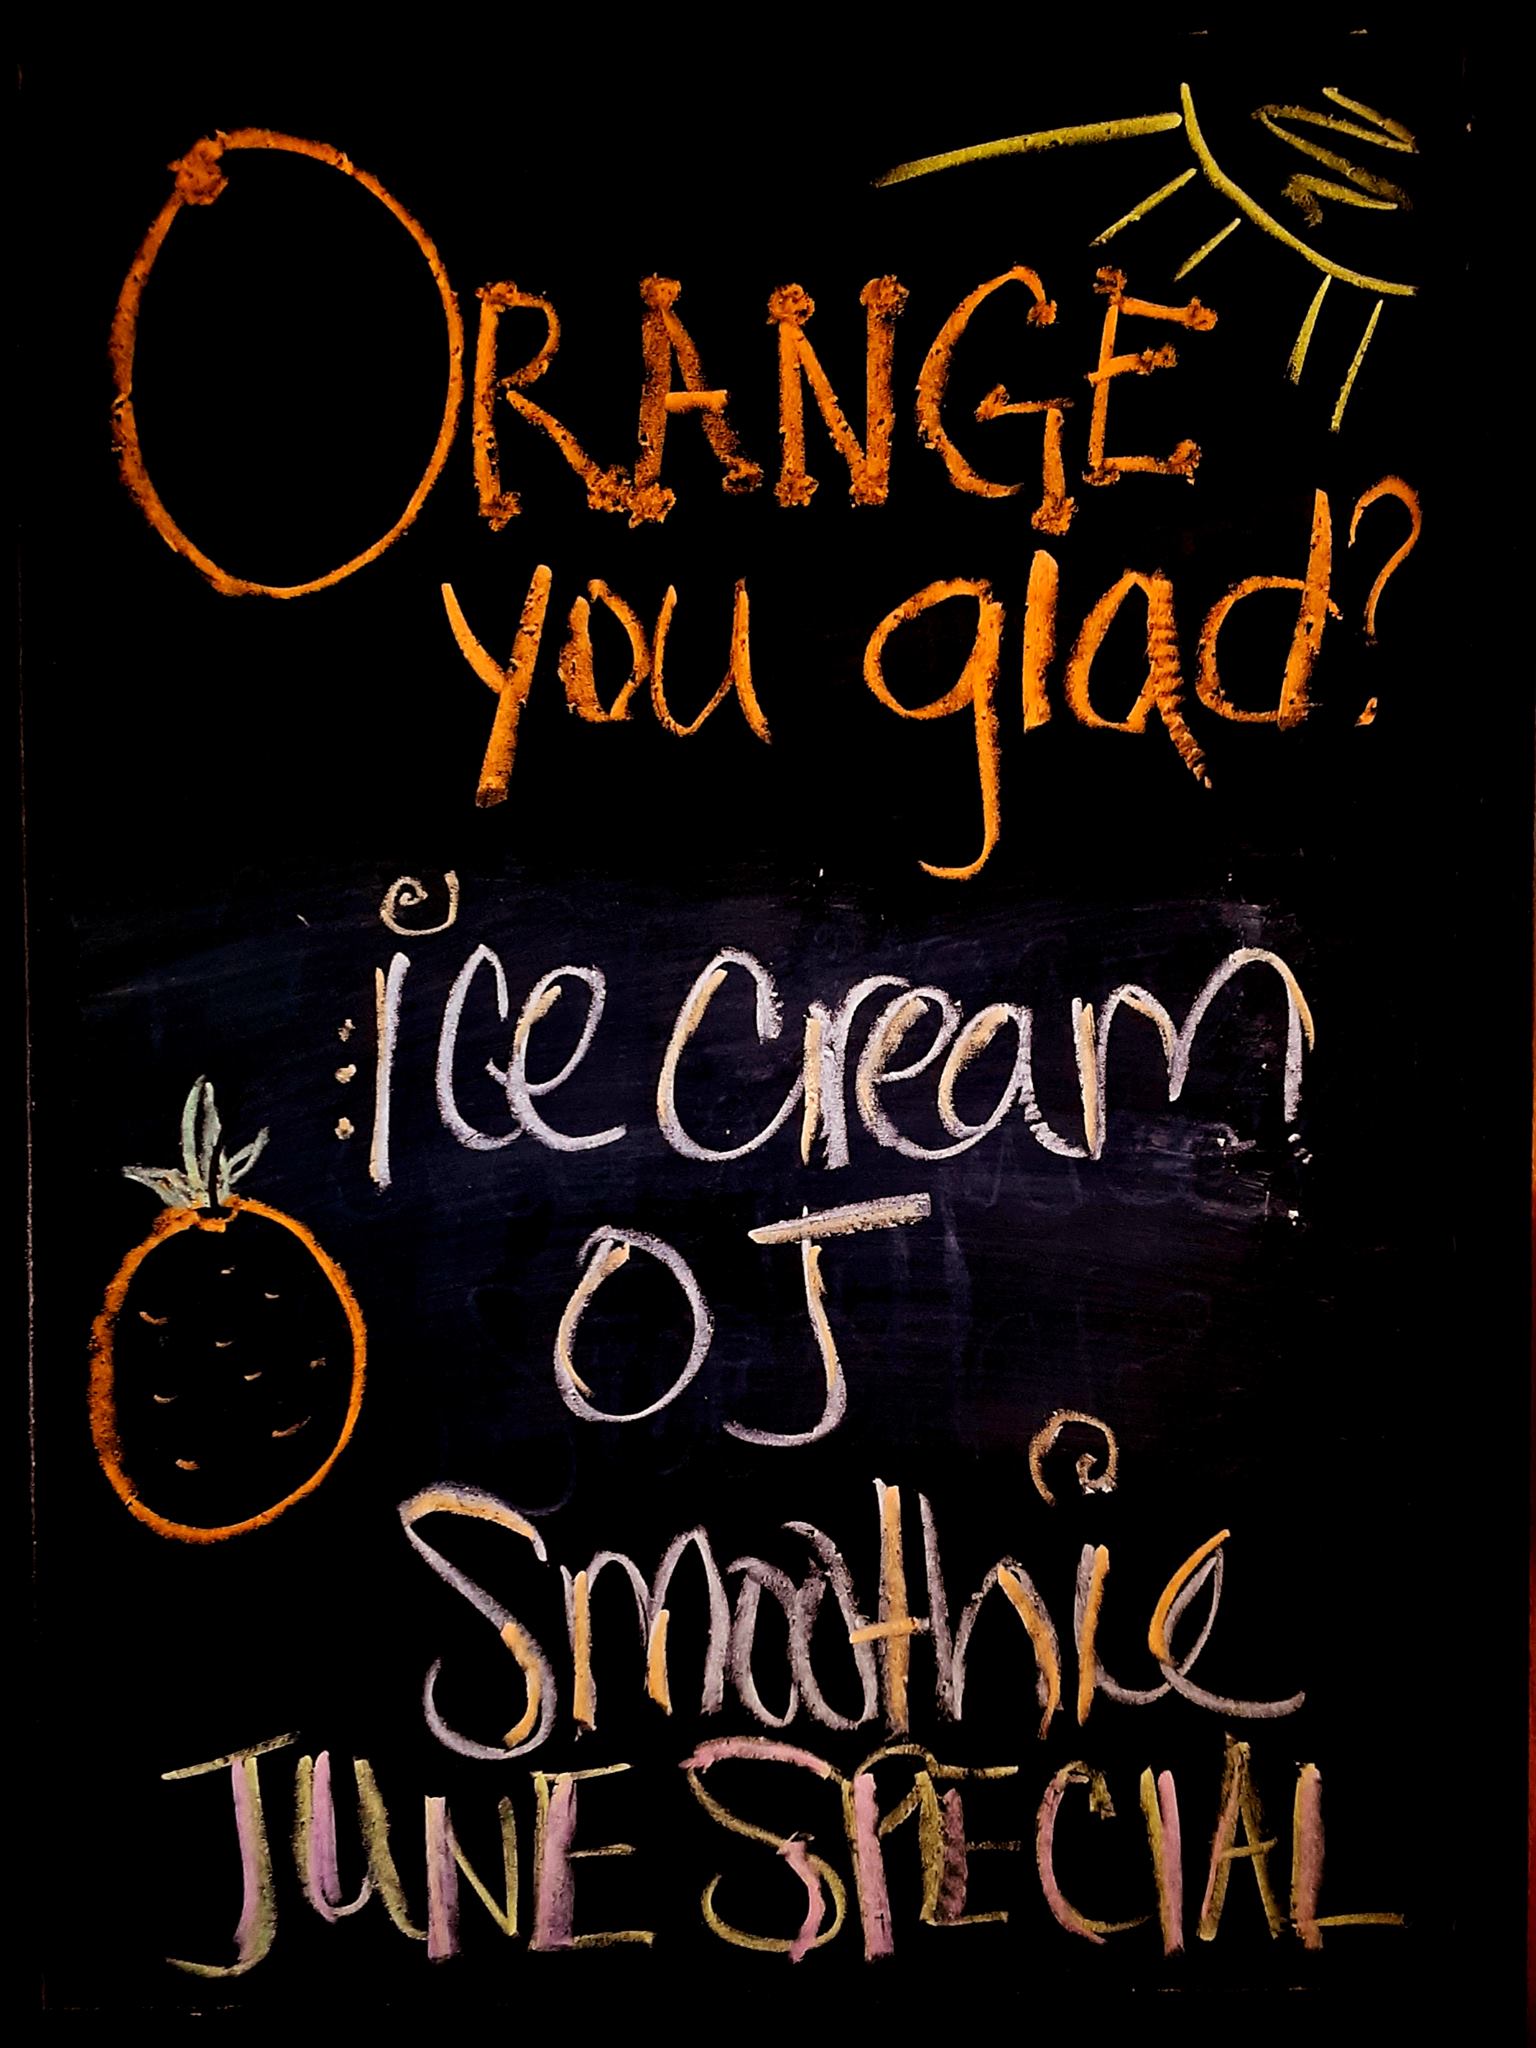 ORANGE
you glad?
ice cream
OJ
Smoothie
JUNE SPECIAL